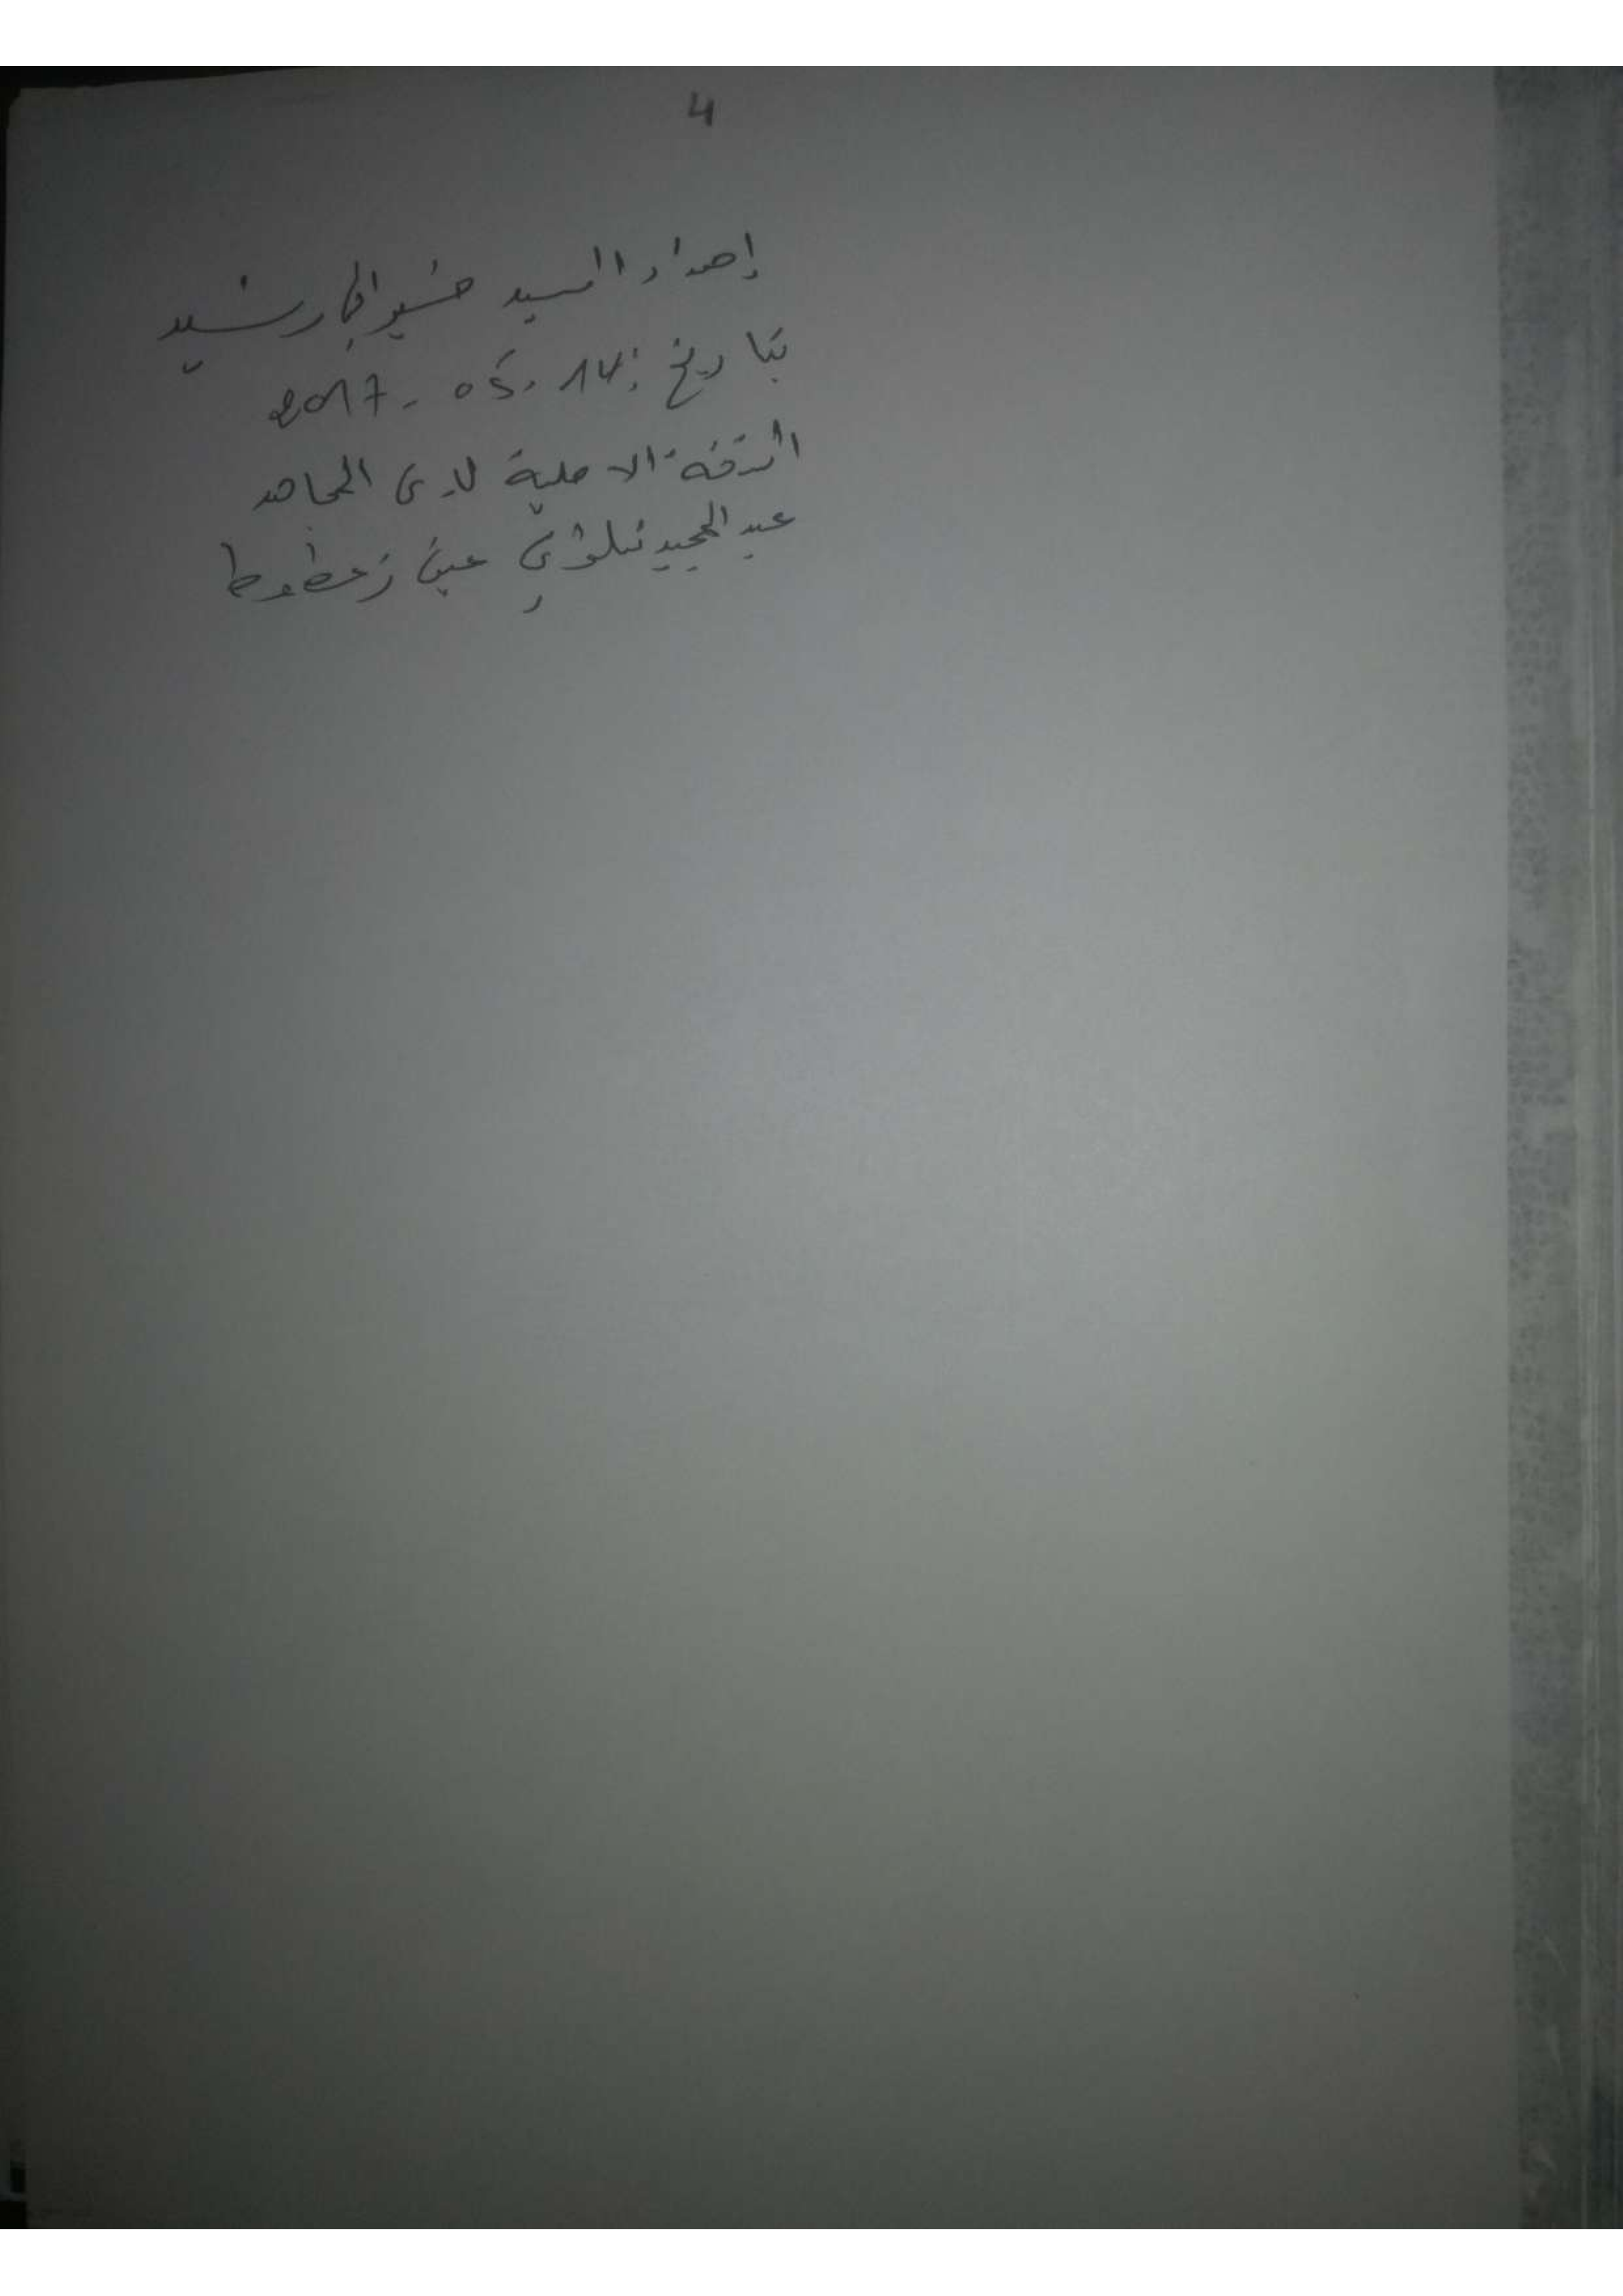 4
إهداء السيد خشير الحاج رشيد
بتاريخ: 14. 05. 2017
النسخة الاصلية لدى المجاهد
عبد المجيد عين زعطوط